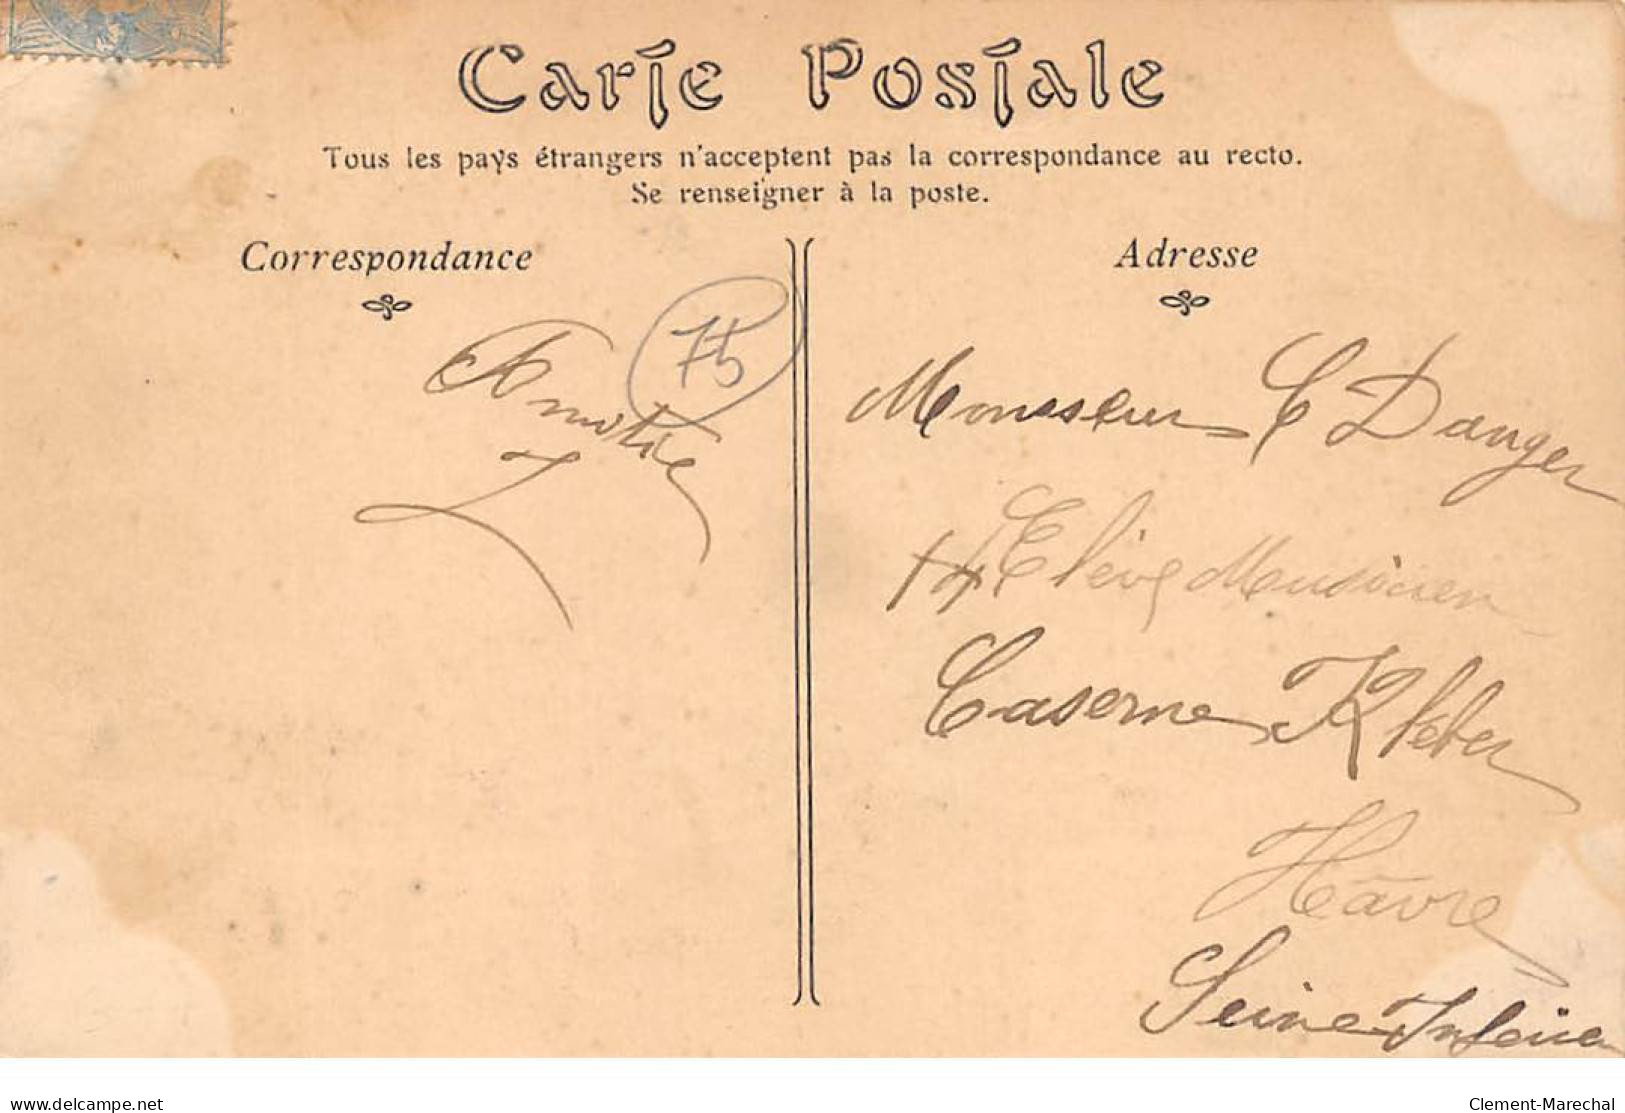 Carte Postale
Tous les pays étrangers n'acceptent pas la correspondance au recto.
Se renseigner à la poste.
Correspondance
Adresse
75
Amitié
Monsieur C Danger
Elève Musicien
Caserne Kleber
Hâvre
Seine Inférieu
delcampe.net
Clement-Marechal